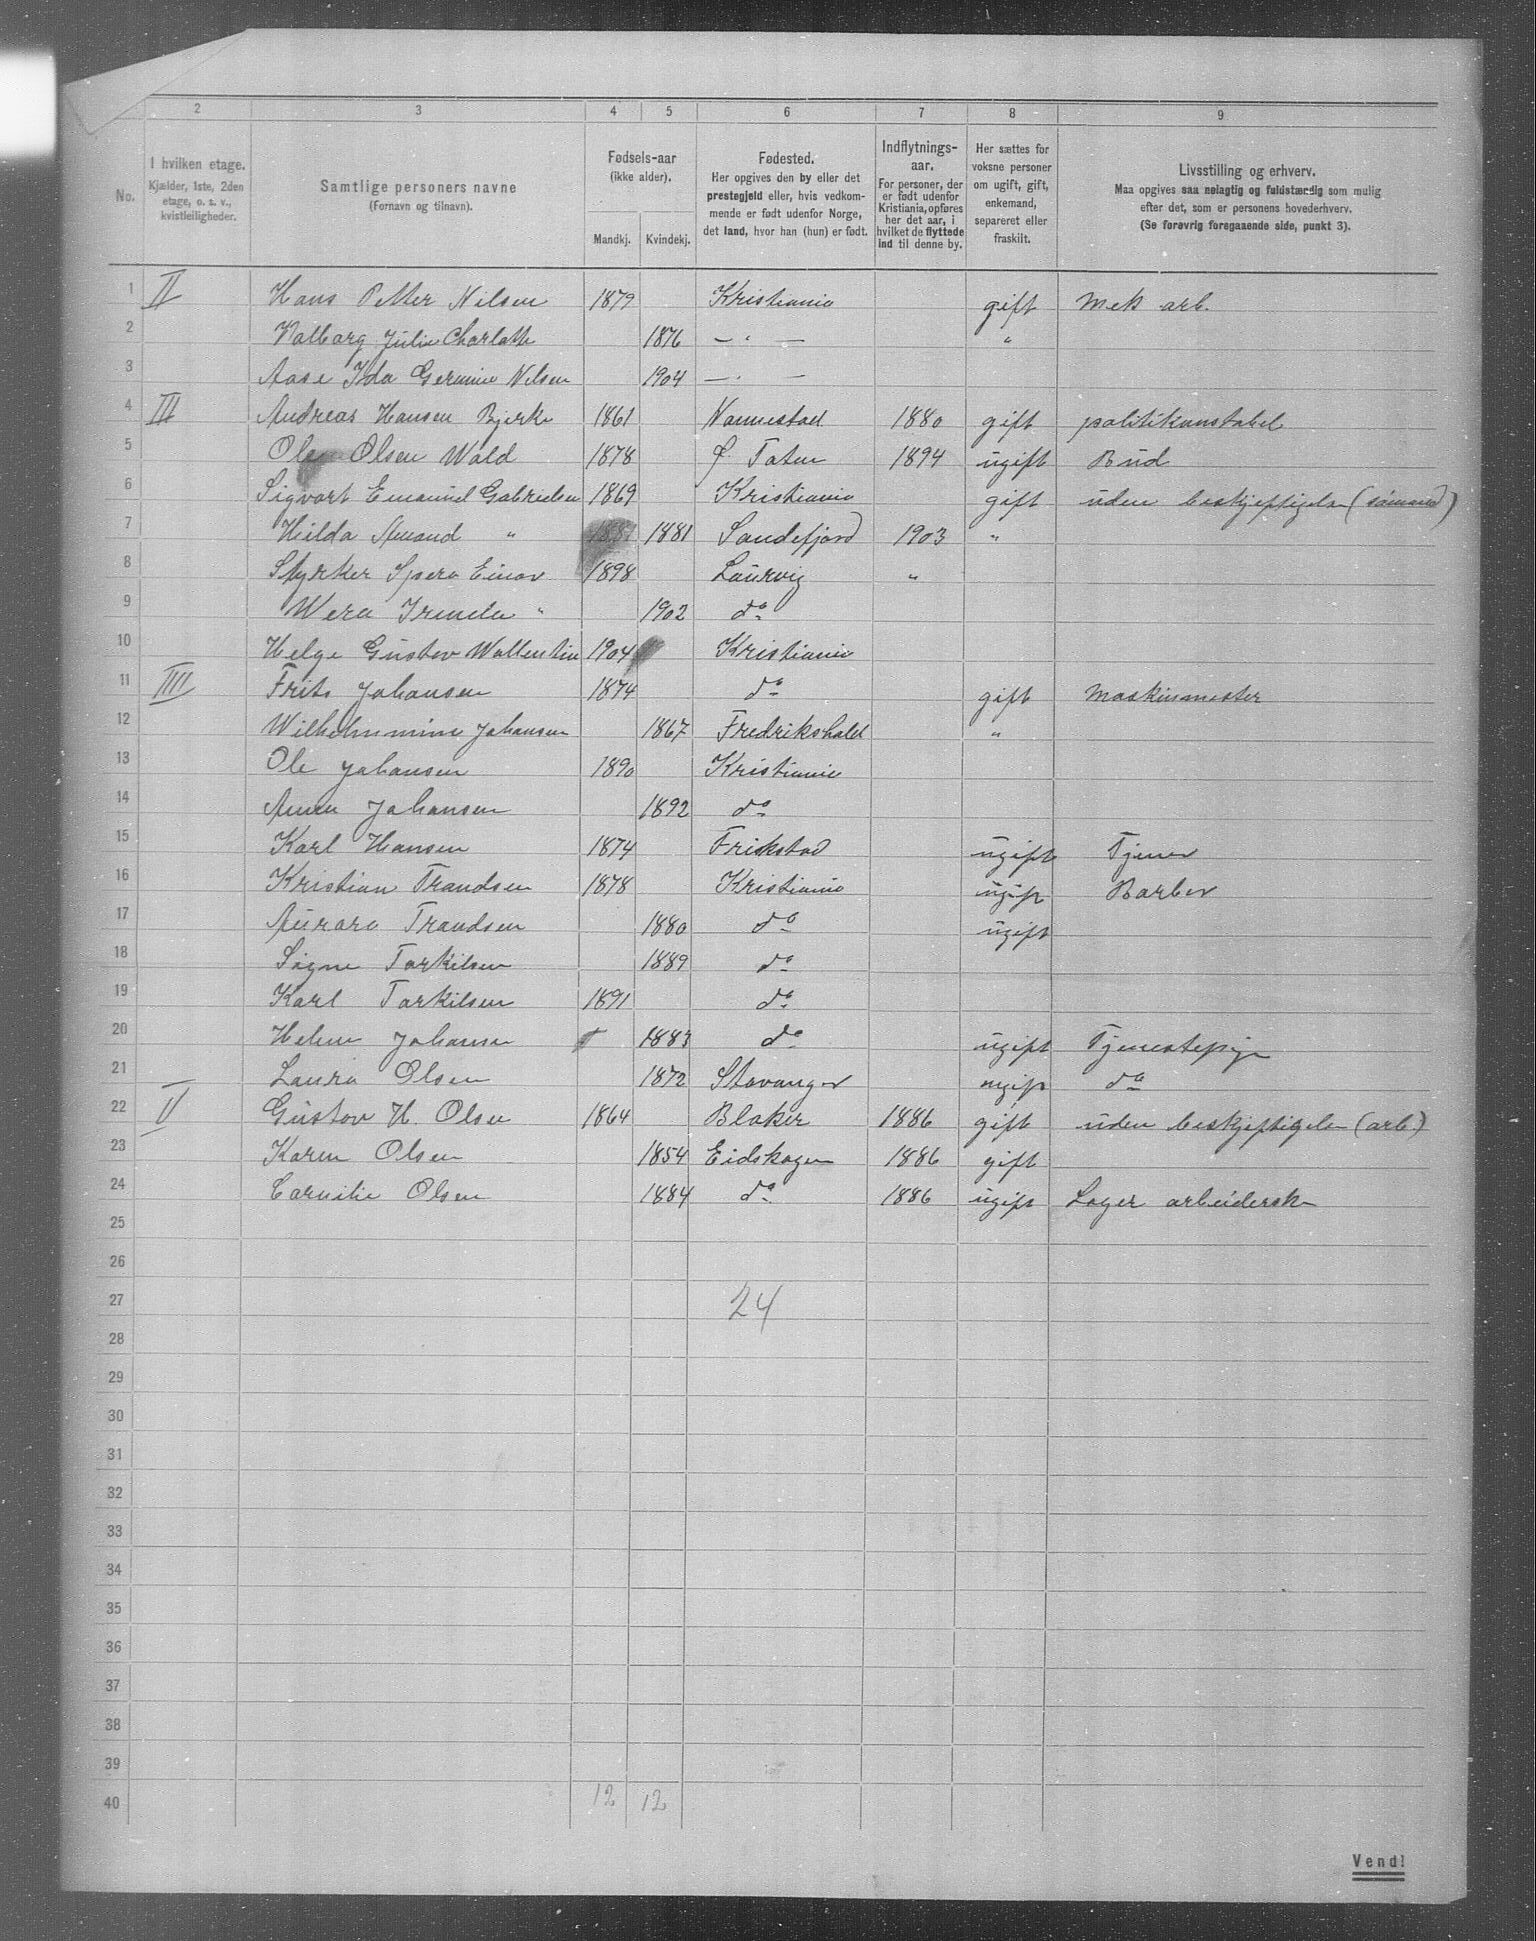 2 3 4 5 6 7 8 9
No.
I hvilken etage.
Kjælder, 1ste, 2den
etage, o. s. v.,
kvistleiligheder.
Samtlige personers navne
(Fornavn og tilnavn).
Fødsels-aar
(ikke alder).
Mandkj. Kvindekj.
Fødested.
Her opgives den by eller det
prestegjeld eller, hvis vedkom-
mende er født udenfor Norge,
det land, hvor han (hun) er født.
Indflytnings-
aar.
For personer, der
er født udenfor
Kristiania, opføres
her det aar, i
hvilket de flyttede
ind til denne by.
Her sættes for
voksne personer
om ugift, gift,
enkemand,
separeret eller
fraskilt.
Livsstilling og erhverv.
Maa opgives saa nøiagtig og fuldstændig som mulig
efter det, som er personens hovederhverv.
(Se forøvrig foregaaende side, punkt 3).
1 II Hans Petter Nilsen 1879 Kristiania gift Mek arb.
2 Valborg Julie Charlotte 1876 — " — "
3 Aase Ida Germine Nilsen 1904 — " —
4 III Andreas Hansen Bjerke 1861 Nannestad 1880 gift politikonstabel
5 Olsen Wold 1878 Ø. Toten 1894 ugift Bud
6 Sigvart Emanuel Gabrielsen 1869 Kristiania gift uden beskjeftigelse (sömand)
7 Hilda Amand " 1881 1881 Sandefjord 1903 "
8 Styrker Spero Einar 1898 Laurvig "
9 Wera Irmela " 1902 do
10 Helge Gustav Wallentin 1904 Kristiania
11 IIII Frits Johansen 1874 do gift Maskinmester
12 Wilhelmmine Johansen 1867 Fredrikshald "
13 Ole Johansen 1890 Kristiania
14 Anna Johansen 1892 do
15 Karl Hansen 1874 Frikstad ugift Tjener
16 Kristian Trandsen 1878 Kristiania ugift Barber
17 Aurora Trandsen 1880 do ugift
18 Signe Torkilsen 1889 do
19 Karl Torkilsen 1891 do
20 Helene Johansen 1883 do ugift Tjenestepige
21 Laura Olsen 1872 Stavanger ugift do
22 V Gustav H. Olsen 1864 Blaker 1886 gift uden beskjeftigelse (arb)
23 Karen Olsen 1854 Eidskogen 1886 gift
24 Cornilie Olsen 1884 do 1886 ugift Lager arbeiderske
25
26
27 24
28
29
30
31
32
33
34
35
36
37
38
39
40 12 12
Vend!